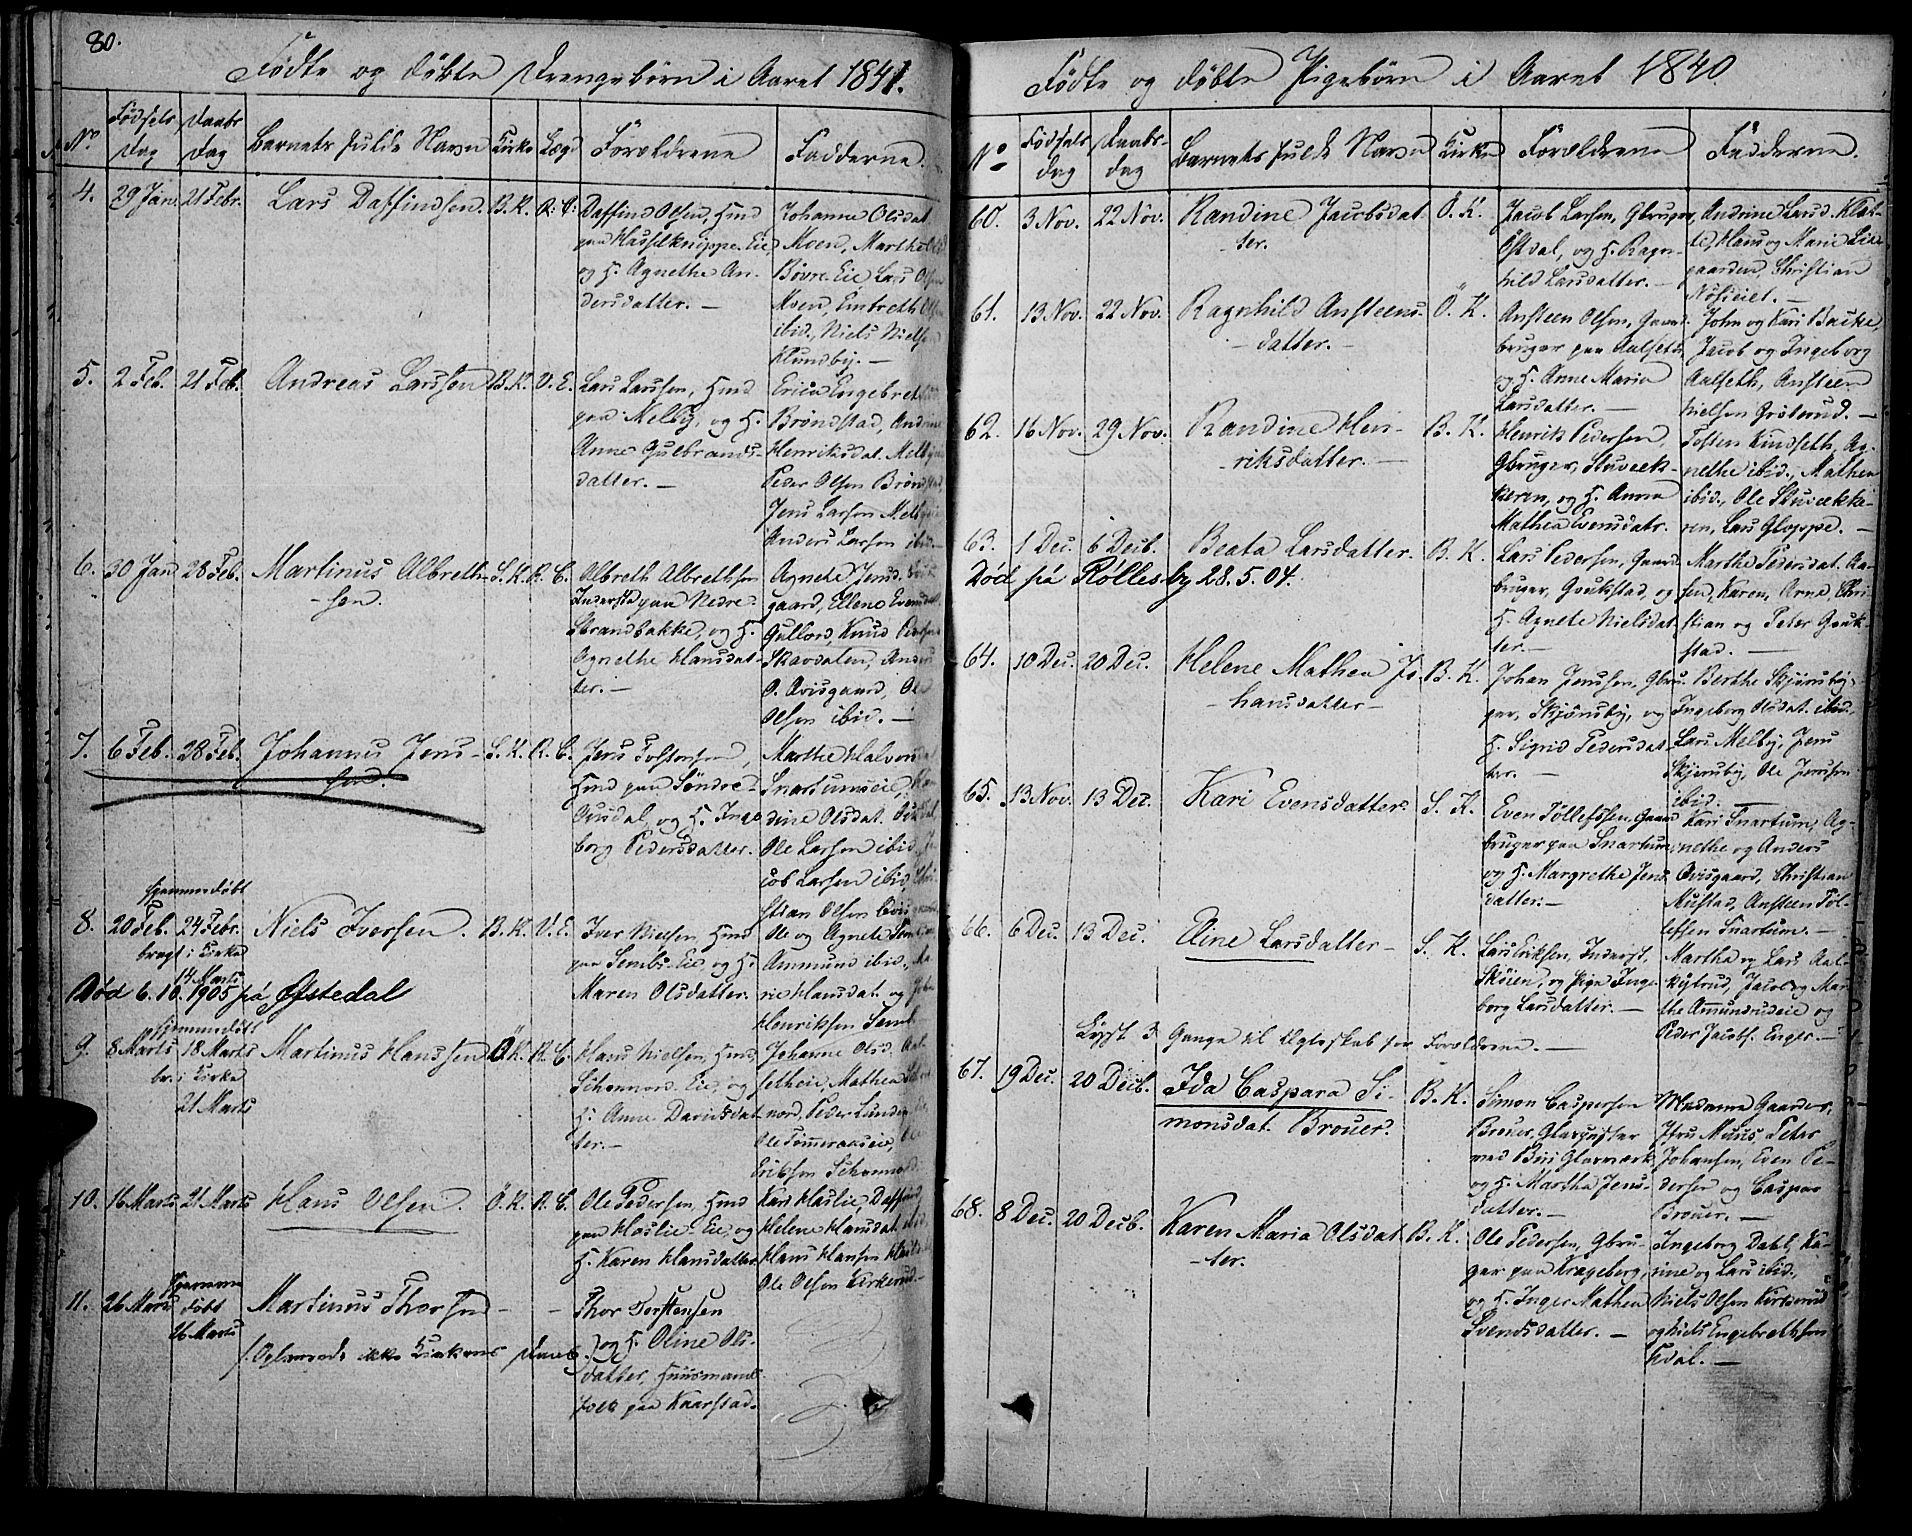 80.
Fødte og døbte Drengebørn i Aaret 1841.
No
Fødsels Dag
Daabs Dag
Barnets fulde Navn
Kirke
Lægd
Forældrene
Fadderne.
4. 29 Jan. 21 Febr. Lars Daffindsen. B. K. R: C:
Daffind Olsen, Hmd
paa Hasselknippe-Eie,
og H. Agnethe An-
dersdatter. —
Johanne Olsdat.
Moen, Marthe
Bøvre-Eie, Lars Olsen
Moen, Embreth Olsen
ibid., Niels Nielsen
Klundby. —
5. 2 Feb. 21 Feb. Andreas Larssen B. K. V. E.
Lars Larssen, Hmd
paa Melby, og H.
Anne Gulbrands-
datter. —
Erica Engebret
Brønstad, Andrine
Henriksdat. Melby
Peder Olsen Brønstad,
Jens Larsen Melby
Anders Larsen ibid. —
6. 30 Jan 28 Feb. Martinus Albreth-
sen. S. K. R. C.
Albreth Albrethsen
Inderste paa Nedre-
Strandbakke, og H.
Agnethe Hansdat-
ter. —
Agnete Jensd.
gaard, Ellene Evensdat.
Gullord, Knud Peders
Skavdalen, Anders
O. Qvisgaard, Ole
Olsen ibid. —
7. 6 Feb. 28 Feb. Johannes Jens-
sen. S. K. R. C.
Jens Tostensen,
Hmd paa Søndre-
Ousdal, og H. Inge
borg Pedersdatter.
Marthe Halvorsdat
Snartumseie,
dine Olsdat. Ousdal,
Ole Larsen ibid.,
cob Larsen ibid.,
stian Olsen Qvisgaard.
8. 20 Feb.
hjemmedøbt
24 Febr.
bragt i Kirke
14 Marts
Niels Iversen. B. K. V. E.
Iver Nielsen, Hmd
paa Sembs-Eie, og H.
Maren Olsdatter.
Ole og Agnete Sem
Ammund ibid., Ma
rie Hansdat. og
Henriksen Semb.
Død 6.10.1905 på Østedal
9. 8 Marts
hjemmedøbt
18 Marts
br. i Kirke
21 Marts
Martinus Hanssen Ö. K. R. C.
Hans Nielsen, Hmd,
Schonnord-Eie, og
H. Anne Davidsdat-
ter. —
Johanne Olsd. Aal
setheie, Mathea Schon
nord, Peder Lunden
Ole Tømmeraaseie,
Eriksen Schonnord
10. 16 Marts 21 Marts Hans Olsen. Ö. K. R. C.
Ole Pedersen, Hmd
paa Haslie-Eie, og
H. Karen Hansdatter
Kari Haslie, Daffind,
Helene Hansdat. ibid,
Hans Hansen Haslie
Ole Olsen Kirkerud. —
11. 26 Marts
hjemme
døbt
26 Marts
Martinus Thorsen — —
Thor Torstensen
og H. Oline Ols-
datter, Huusmands
folk paa Kaarstad.
Fødte og døbte Pigebørn i Aaret 1840
No
Fødsels dag
Daabs- dag
Barnets fulde Navn
Kirke
Forældrene
Fadderne.
60. 3 Nov. 22 Nov. Randine Jacobsdat-
ter. Ö. K.
Jacob Larsen, Gbruger
Østdal, og H. Ragn-
hild Larsdatter. —
Andrine Larsd. Klæt-
te, Hans og Marie Lie-
gaarden, Christian
Nøsseiet. —
61. 13 Nov. 22 Nov. Ragnhild Ansteens-
datter. — Ö. K.
Ansteen Olsen, Gaard-
bruger paa Aalseth,
og H. Anne Maria
Larsdatter. —
John og Kari Bakke,
Jacob og Ingeborg
Aalseth, Ansteen
Nielsen Grøterud. —
62. 16 Nov. 29 Nov. Randine Hen-
riksdatter. — B. K.
Henrik Pedersen,
Gbruger, Stuvek-
keren, og H. Anne
Mathea Evensdatr.
Tosten Kindseth, Ag-
nethe ibid., Mathea
ibid., Ole Stuvække-
ren, Lars Gloppe. —
63. 1 Dec. 6 Decb. Beata Larsdatter. B. K.
Død på Rollesby 28.5.04.
Lars Pedersen, Gaard-
bruger, Gaukstad, og
H. Agnete Nielsdat-
ter. —
Marthe Pedersdat. Aa-
sen, Karen, Arne, Chri-
stian og Peter Gauk-
stad. —
64. 10 Dec. 20 Dec. Helene Mathea Jo-
hansdatter — B. K.
Johan Jenssen, Gbru-
ger, Skjønsby, og
H. Sigrid Pedersdat-
ter. —
Berthe Skjønsby,
Ingeborg Olsdat. ibid.,
Lars Melby, Jens
Skjønsby, Ole Jenssen
ibid. —
65. 13 Nov. 13 Dec. Kari Evensdatter. S. K.
Even Tollefssen, Gaard
bruger paa Snartum,
og H. Margrethe Jens
datter. —
Kari Snartum, Ag-
nethe og Anders
Qvisgaard, Christian
Mustad, Ansteen Tol-
lefsen Snartum. —
66. 6 Dec. 13 Dec. Eline Larsdatter — S. K.
Lars Eriksen, Inderst,
Skøien, og Pige Inge-
borg Larsdatter. —
Martha og Lars Aal-
skytrud, Jacob og Mar-
the Amundrudeie og
Peder Jacobs. Enger. —
Lyst 3 Gange til Egteskab for Forældrene. —
67. 19 Dec. 20 Decb. Ida Caspara Si-
monsdat. Brouer. B. K.
Simon Caspersen
Brouer, Glaspuster
ved Biri Glasværk
og H. Martha Jens-
datter. —
Madame Gaarder,
Jfru Muus, Peter
Johansen, Even Pe-
dersen og Caspar
Brouer. —
68. 8 Dec. 20 Decb. Karen Maria Olsdat-
ter. B. K.
Ole Pedersen, Gbru-
ger paa Krageberg,
og H. Inger Mathea
Svendsdatter. —
Ingeborg Dahl, Ka-
rine og Lars ibid.,
Niels Olsen Kirkerud
og Niels Engebrethsen
Hval. —